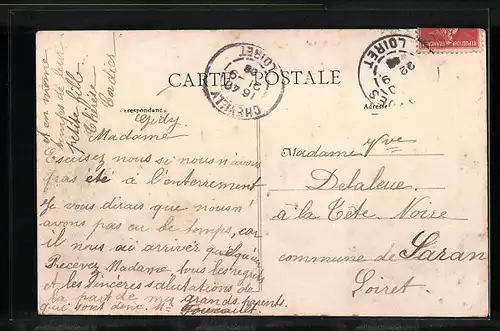 et en même
temps de leur
petite fille
Thérèse
CARTE POSTALE
CHEVILLY
LOIRET
LOIRET
Correspondance
Adresse
Gidy
Madame
Excusez nous si nous n'avons
pas été à l'enterrement
Je vous dirais que nous n'
avons pas eu le temps, car
il nous est arriver quelqu'un
Recevez Madame tous les regrets
et les sincères salutations de
la part de mes grands parents.
qui sont donc M.
Madame Vve
Delaleue
à la Tête Noire
commune de Saran
Loiret.